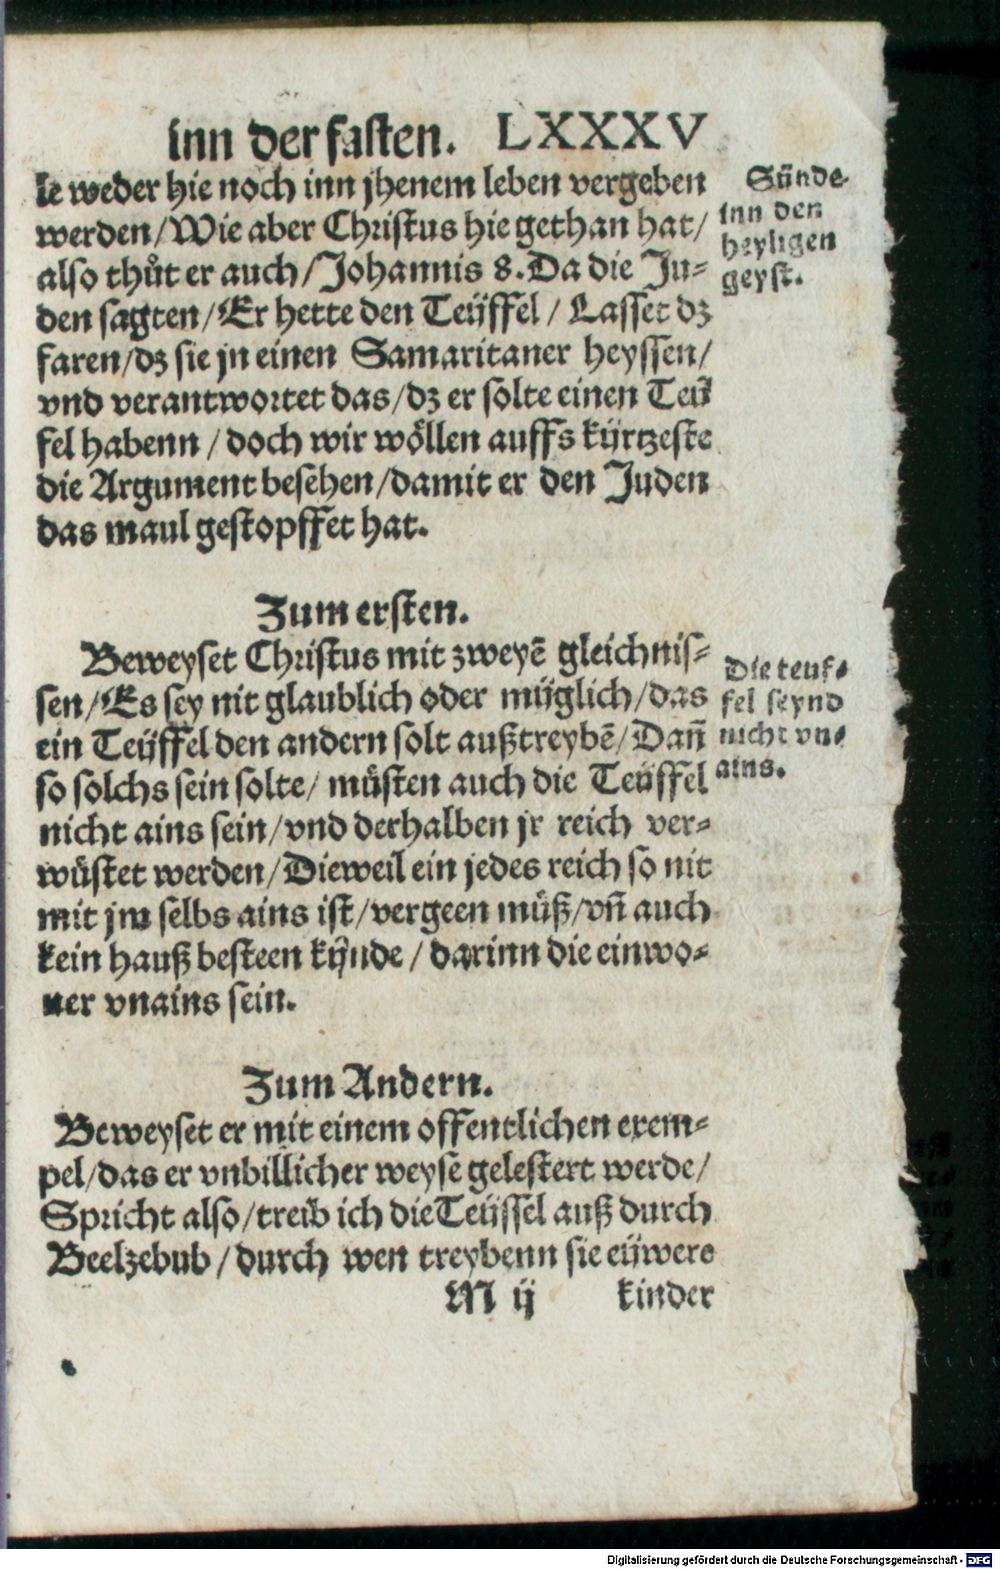 inn der fasten. LXXXV
le weder hie noch inn jhenem leben vergeben
werden/Wie aber Christus hie gethan hat/
also thůt er auch/Johannis 8. Da die Ju⸗
den sagten/Er hette den Teüffel/Lasset dz
faren/dz sie jn einen Samaritaner heyssen/
vnd verantwortet das/dz er solte einen Teü
fel habenn/doch wir wöllen auffs kürtzeste
die Argument besehen/damit er den Juden
das maul gestopffet hat.
Sünde
inn den
heyligen
geyst.
Zum ersten.
Beweyset Christus mit zweyē gleichnis⸗
sen/Es sey nit glaublich oder müglich/das
ein Teüffel den andern solt außtreybē/Dañ
so solchs sein solte/müsten auch die Teüffel
nicht ains sein/vnd derhalben jr reich ver⸗
wüstet werden/Dieweil ein jedes reich so nit
mit jm selbs ains ist/vergeen müß/vñ auch
kein hauß besteen künde/darinn die einwo⸗
ner vnains sein.
Die teuf⸗
fel seynd
nicht vn⸗
ains.
Zum Andern.
Beweyset er mit einem offentlichen exem⸗
pel/das er vnbillicher weyse gelestert werde/
Spricht also/treib ich die Teüffel auß durch
Beelzebub/durch wen treybenn sie eüwere
M ij kinder
Digitalisierung gefördert durch die Deutsche Forschungsgemeinschaft - DFG